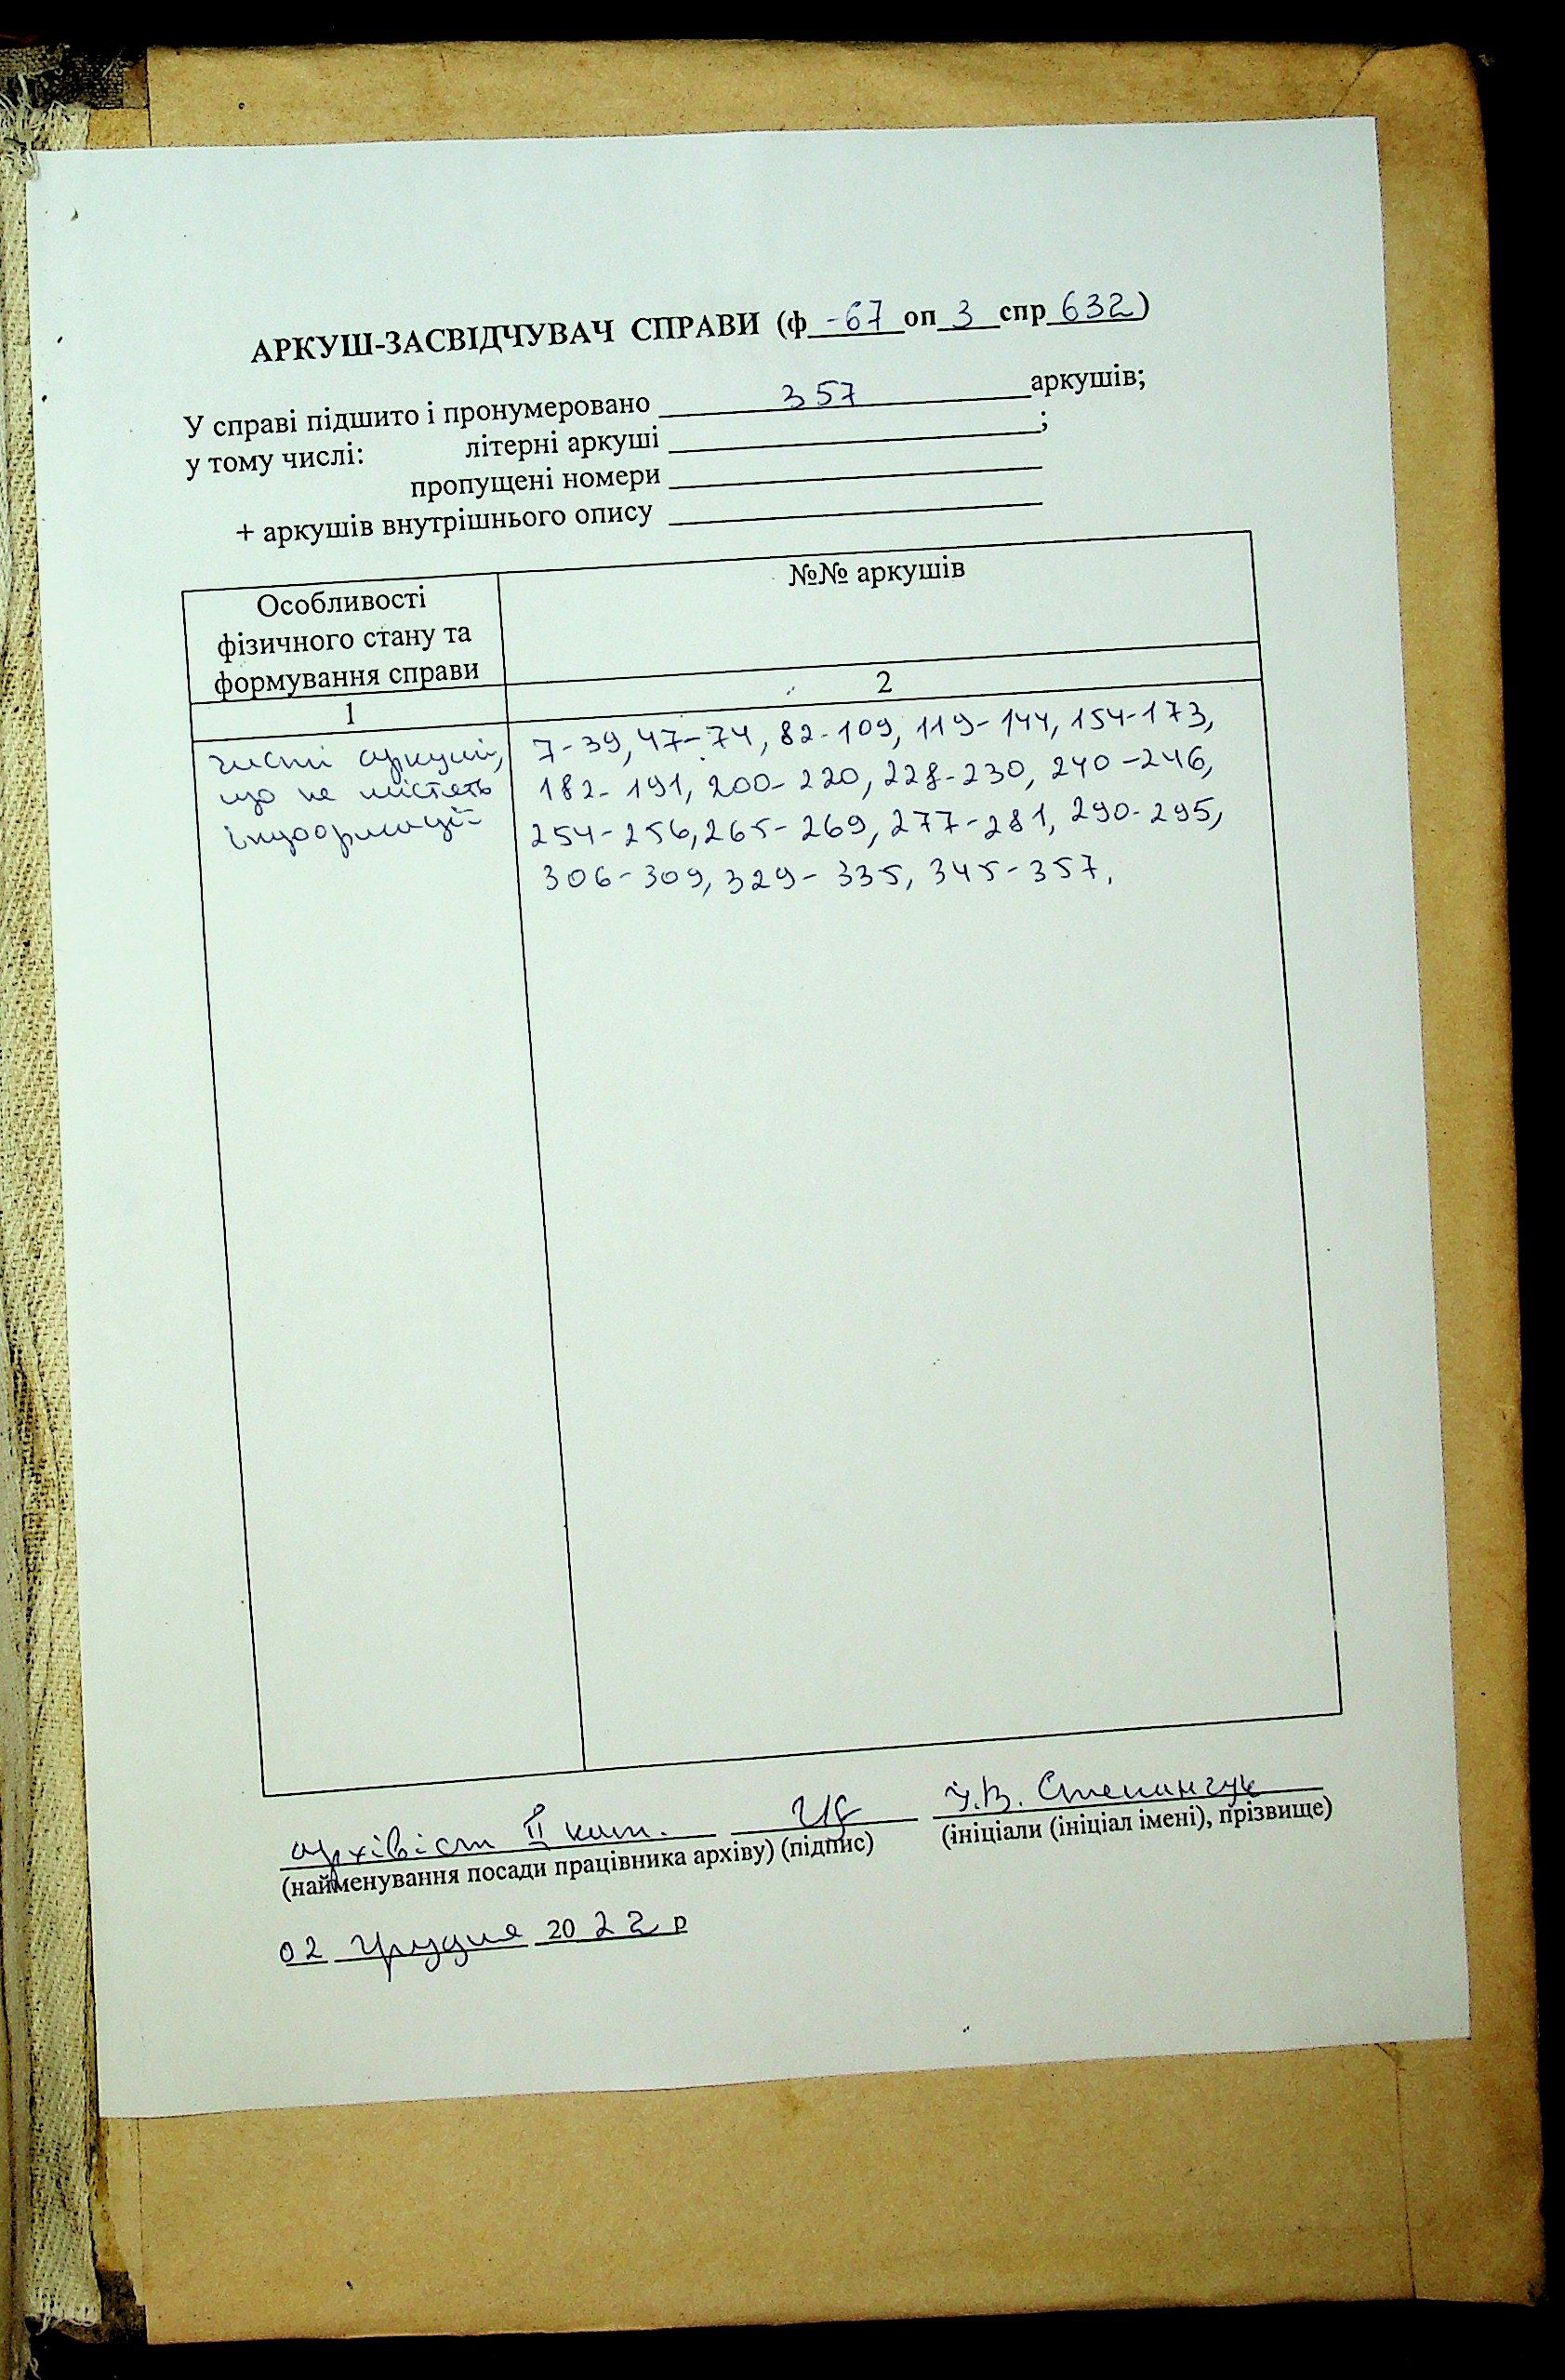 АРКУШ-ЗАСВІДЧУВАЧ СПРАВИ (ф -67 оп 3 спр 632)
У справі підшито і пронумеровано 357 аркушів;
у тому числі: літерні аркуші ;
пропущені номери
+ аркушів внутрішнього опису
Особливості
фізичного стану та
формування справи
№№ аркушів
1
2
чисті аркуші,
що не містять
інформації
7-39, 47-74, 82-109, 119-144, 154-173,
182-191, 200-220, 228-230, 240-246,
254-256, 265-269, 277-281, 290-295,
306-309, 329-335, 345-357.
архівіст II кат. І.В. Степанчук
(найменування посади працівника архіву) (підпис) (ініціали (ініціал імені), прізвище)
02 грудня 2022 р